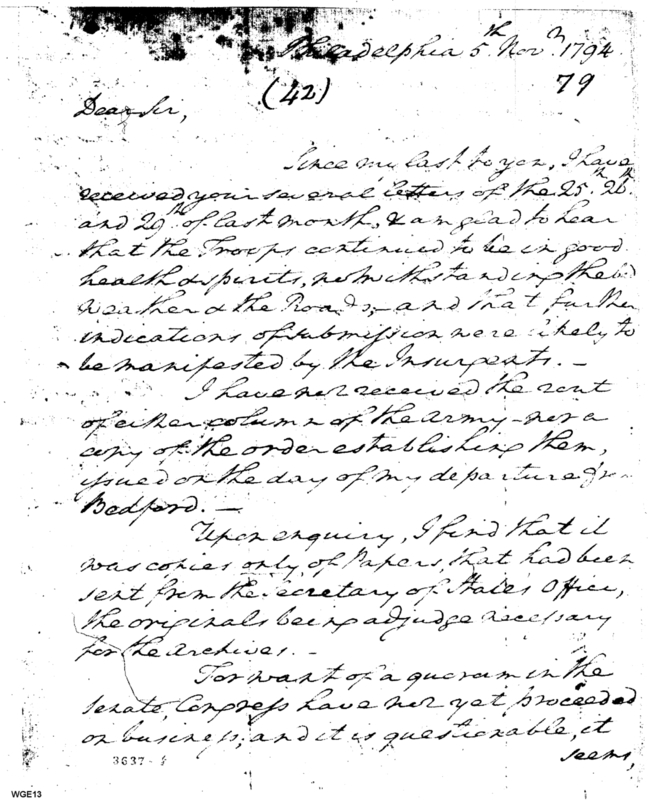 Philadelphia 5th Novr 1794.
(42) 79
Dear Sir,
Since my last to you, I have
received your several letters of the 25th. 26th.
and 29th of last month, & am glad to hear
that the Troops continued to be in good
health & spirits, notwithstanding the bad
weather & the Roads; - and that further
indications of submission were likely to
be manifested by the Insurgents. -
I have not received the rout
of either column of the Army - nor a
copy of the order establishing them,
issued on the day of my departure from
Bedford. -
Upon enquiry, I find that it
was copies only, of Papers, that had been
sent from the Secretary of State's Office,
the originals being adjudge necessary
for the archives. -
For want of a quorum in the
Senate, Congress have not yet proceeded
on business; and it is questionable, it
seems,
3637-
WGE13